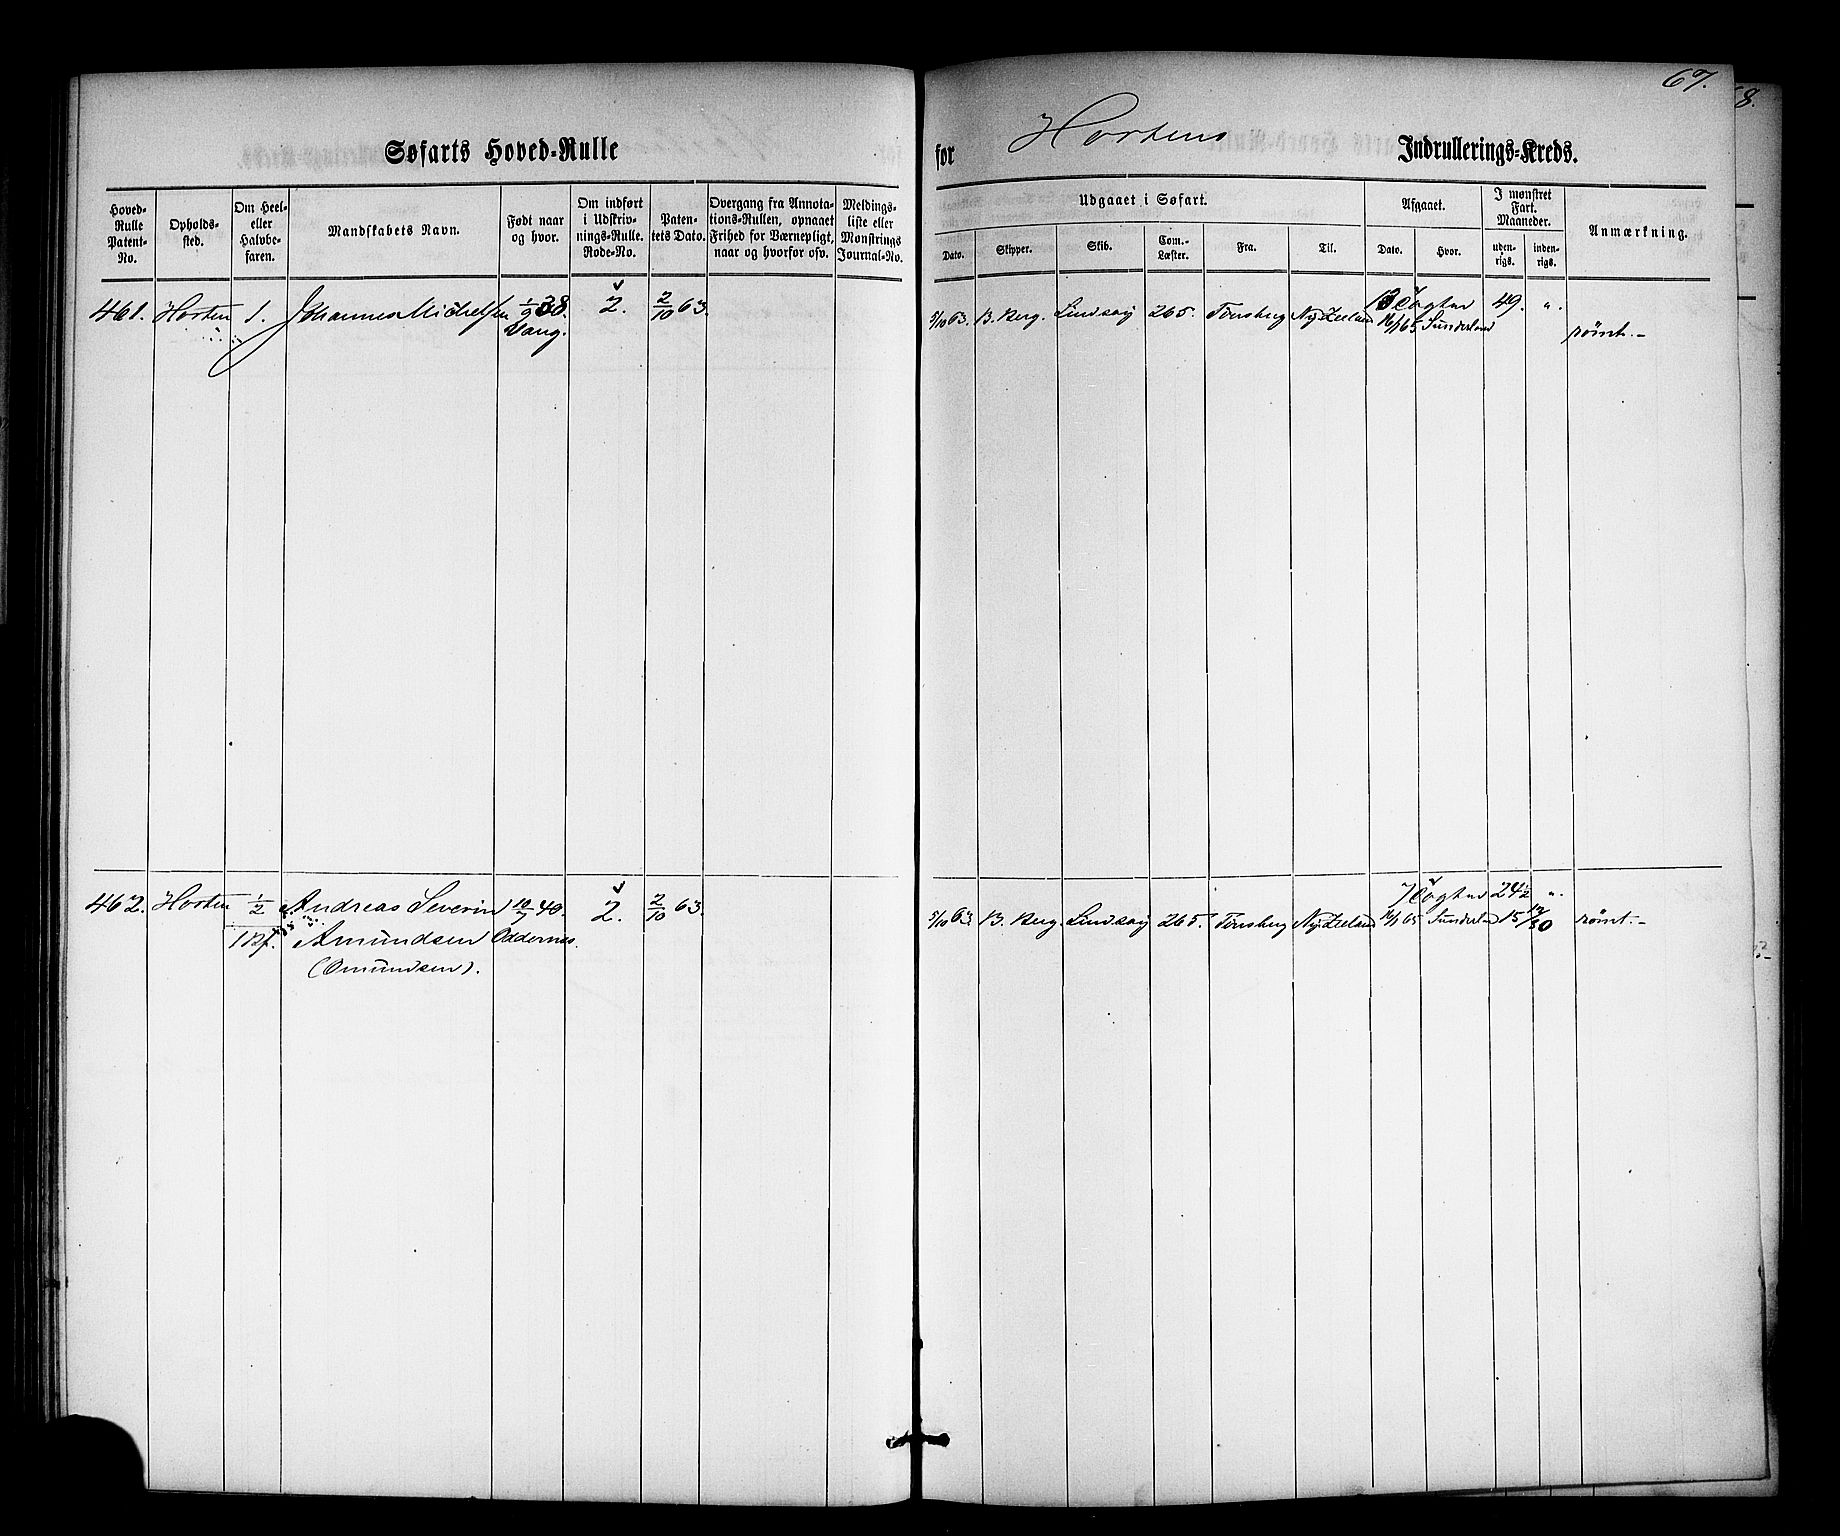 67.
8.
Søfarts Hoved-Rulle
for Hortens Indrullerings-Kreds.
Hoved-Rulle Patent-No.
Opholds-sted.
Om Heel- eller Halvbe-faren.
Mandskabets Navn.
Født naar og hvor.
Om indført i Udskriv-nings-Rulle. Rode-No.
Paten-tets Dato.
Overgang fra Annota-tions-Rullen, opnaaet Frihed for Værnepligt, naar og hvorfor ofv.
Meldings-liste eller Mønstrings Journal-No.
Udgaaet i Søfart.
Dato.
Skipper.
Skib.
Com.-Læster.
Fra.
Til.
Afgaaet.
Dato.
Hvor.
I mønstret Fart. Maaneder.
uden-rigs.
inden-rigs.
Anmærkning.
461. Horten 1. Johannes Michelsen 1/9 38. 2. 2/10 63.
Vang.
5/10 63. B. Berg. Lindsay 265. Tönsberg Ny-Zeeland 49. "
16/1 65 Sunderland römt.-
462. Horten 1/2 Andreas Severin 10/7 40. 2. 2/10 63.
Amundsen Oddernes.
(Omundsen).
24 1/2 "
5/10 63. B. Berg. Lindsay 265. Tönsberg Ny-Zeeland 16/1 65 Sunderland 15 römt.-